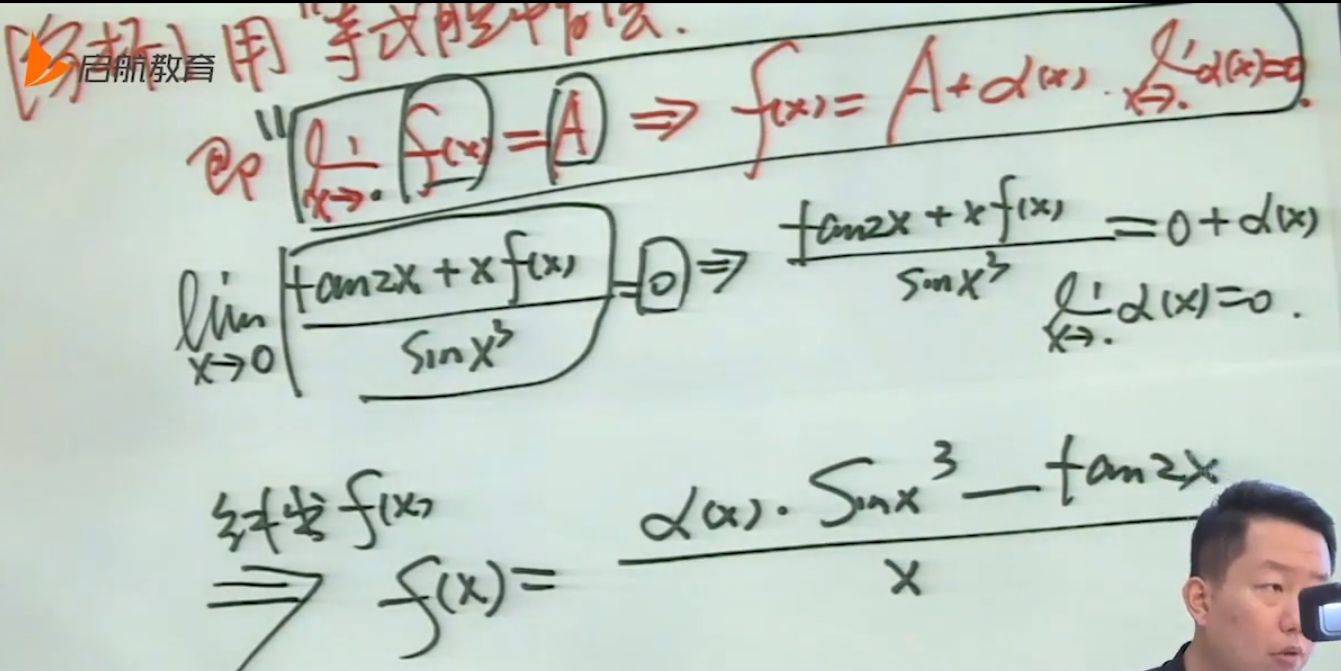 [分析] 用"等式脱帽法.
启航教育
即"lim_{x→·} f(x) = A ⇒ f(x) = A + α(x). lim_{x→·} α(x)=0.
lim_{x→0} (tan2x + x f(x)) / sinx³ = 0 ⇒ (tan2x + x f(x)) / sinx³ = 0 + α(x)
lim_{x→·} α(x)=0.
f(x)
⇒ f(x) = (α(x)·sinx³ − tan2x) / x